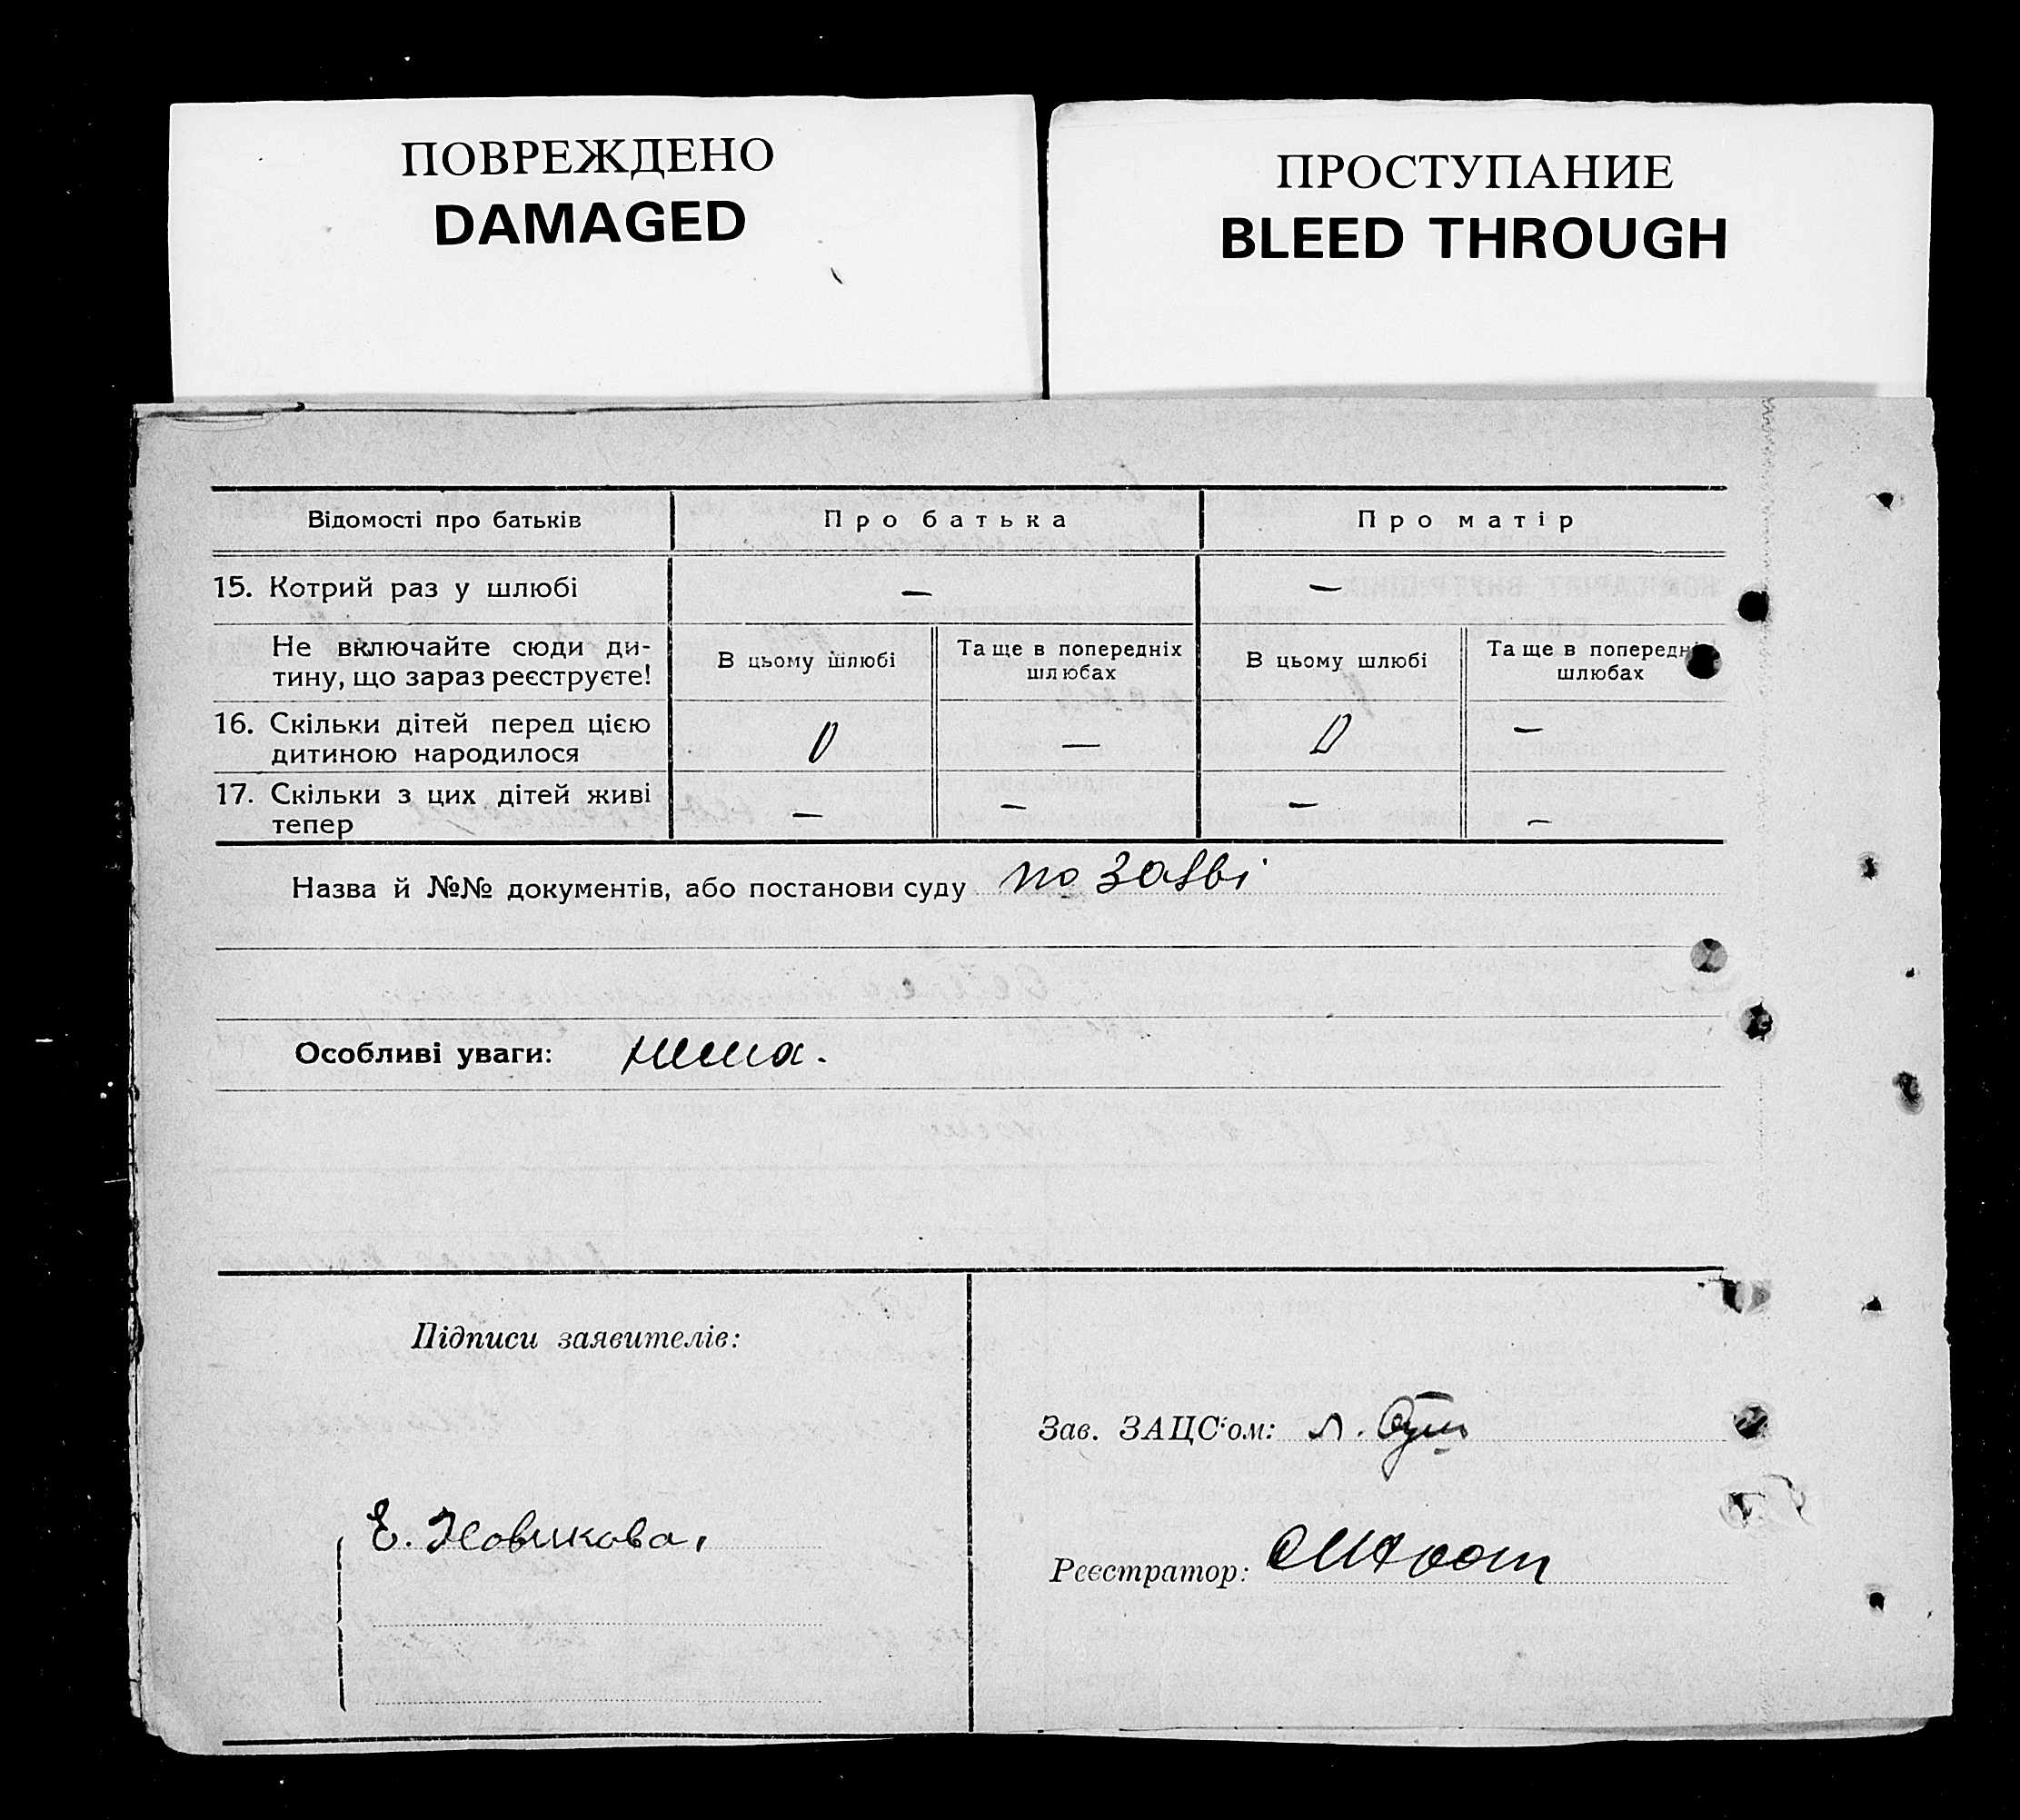 ПОВРЕЖДЕНО
DAMAGED
ПРОСТУПАНИЕ
BLEED THROUGH
Відомості про батьків
Про батька
Про матір
15. Котрий раз у шлюбі
—
—
Не включайте сюди ди-
тину, що зараз реєструєте!
В цьому шлюбі
Та ще в попередніх
шлюбах
В цьому шлюбі
Та ще в попередн
шлюбах
16. Скільки дітей перед цією
дитиною народилося
0
—
0
—
17. Скільки з цих дітей живі
тепер
—
—
—
—
Назва й №№ документів, або постанови суду по заяві
Особливі уваги: нема.
Підписи заявителів:
Е. Новикова,
Зав. ЗАЦС'ом: Л.
Реєстратор: